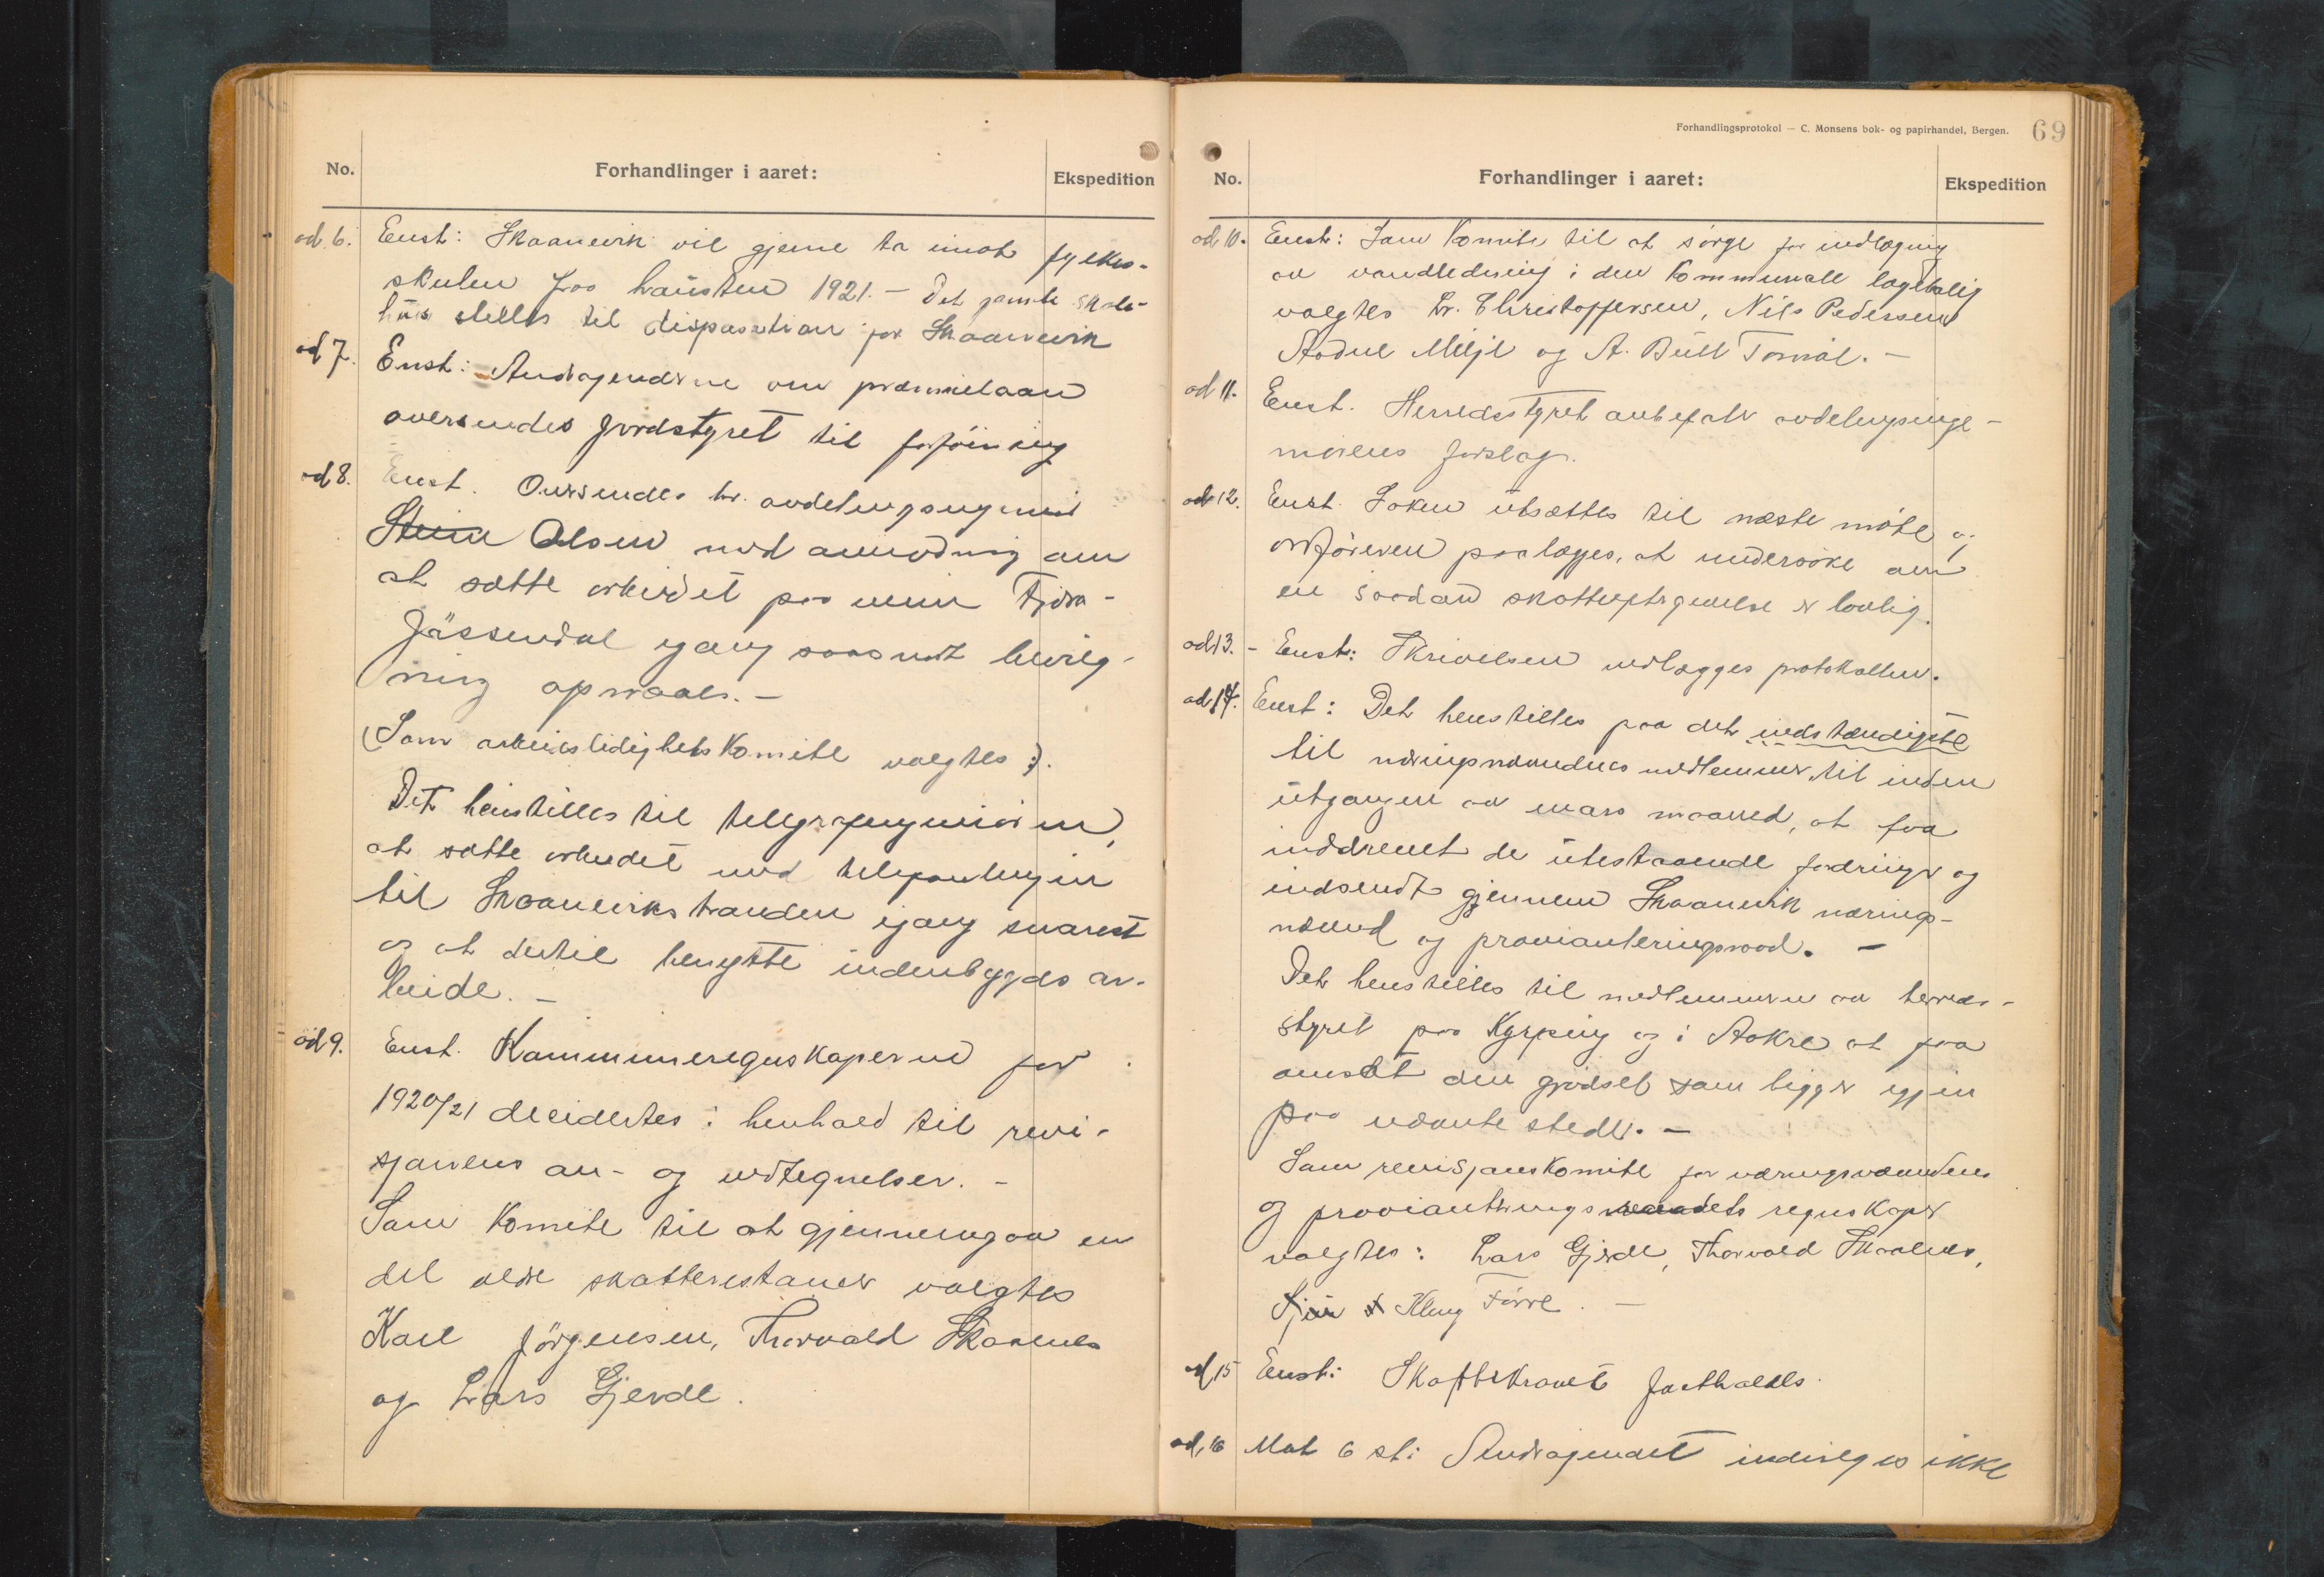 No.
Forhandlinger i aaret:
Ekspedition
ad. 6.
Enst: Skaanevik vil gjerne ta imot fylkes-
skulen paa hausten 1921. - Det gamle skole-
hus stilles til disposition for Skaanevik
ad 7.
Enst: Andragenderne om præmielaan
oversendes jordstyret til forföining
ad 8.
Enst. Oversendes hr. avdelingsingeniör
Olsen med anmodning om
at sætte arbeidet paa veien Fjæra-
Jässendal igang saasnart bevilg-
ning opnaaes. -
(Som arbeidsledighetskomite valgtes:).
Det henstilles til telegrafingeniören,
at sætte arbeidet med telefonlinjen
til Skaaneviksstranden igang snarest
og at dertil benytte indenbygds ar-
beide. -
ad 9.
Enst. Kommuneregnskaperne for
1920/21 decidertes i henhold til revi-
sjonens an- og udtegnelser. -
Som komite til at gjennemgaa en
del eldre skatterestancer valgtes
Karl Jörgensen, Thorvald Skaalnes
og Lars Gjerde.
Forhandlingsprotokol - C. Monsens bok- og papirhandel, Bergen.
69
No.
Forhandlinger i aaret:
Ekspedition
ad 10.
Enst: Som komite til at sörge for indlægning
av vandledning i den kommunale lægebolig
valgtes Dr. Christoffersen, Nils Pedersen
Milje og A. Bull Tornöe. -
ad 11.
Enst. Herredsstyret anbefaler avdelingsinge-
niörens forslag.
ad 12.
Enst. Saken utsættes til næste möte og
ordföreren paalægges, at undersöke om
en saadan skatteeftergivelse er lovlig.
ad 13.
- Enst: Skrivelsen vedlægges protokollen.
ad 14.
Enst: Det henstilles paa det indstændigste
til næringsnævndens medlemmer, til inden
utgangen av mars maaned, at faa
inddrevet de utestaaende fordringer og
indsendt gjennem Skaanevik nærings-
nævnd og provianteringsraad. -
Det henstilles til medlemmerne av herreds-
styret paa Kyrping og i Aakre at faa
omsat den gjödsel som ligger igjen
paa nævnte steder. -
Som revisjonskomite for næringsnævndens
og provianteringsraadets regnskaper
valgtes: Lars Gjerde, Thorvald Skaalnes,
Kleng Förre. -
ad, 15
Enst: Skattekravet fastholdes.
ad, 16
Mot 6 st: Andragendet indvilges ikke